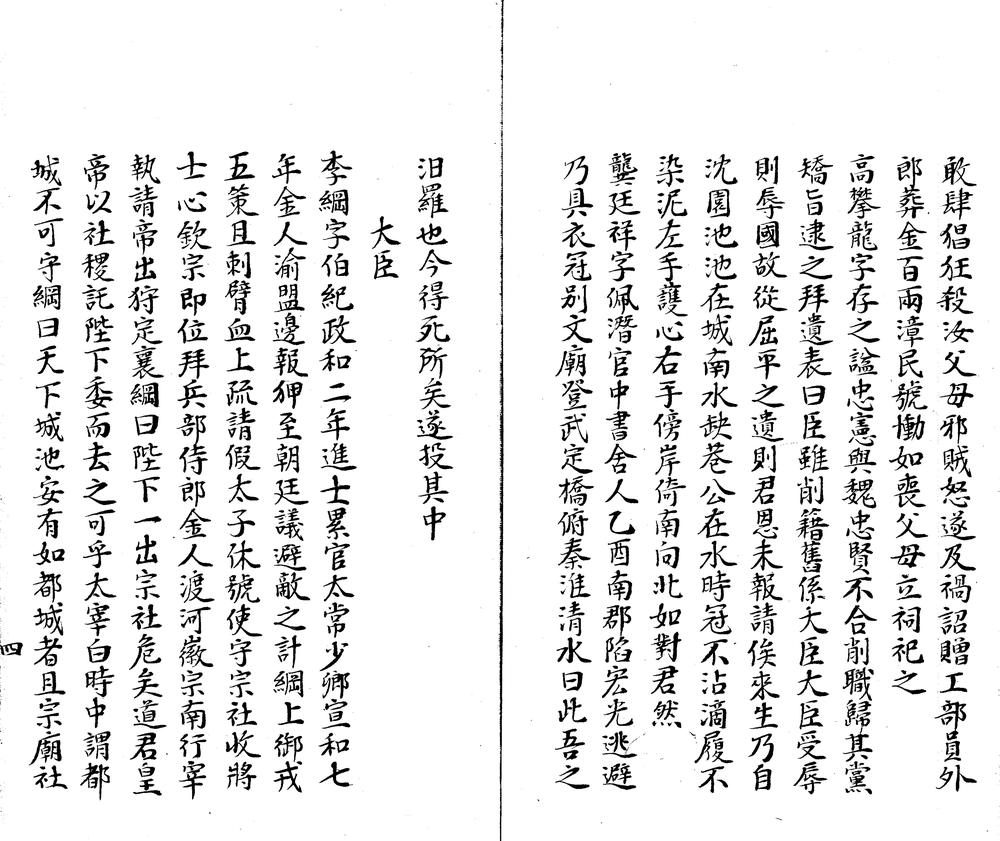 敢肆猖狂殺汝父母邪賊怒遂及禍詔贈工部員外
郎葬金百兩漳民號慟如喪父母立祠祀之
高攀龍字存之諡忠憲與魏忠賢不合削職歸其黨
矯旨逮之拜遺表曰臣雖削籍舊係大臣大臣受辱
則辱國故從屈平之遺則君恩未報請俟來生乃自
沈園池池在城南水缺菴公在水時冠不沾滴履不
染泥左手護心右手傍岸倚南向北如對君然
龔廷祥字佩潛官中書舍人乙酉南郡陷宏光逃避
乃具衣冠别文廟登武定橋俯秦淮清水曰此吾之
汨羅也今得死所矣遂投其中
大臣
李綱字伯紀政和二年進士累官太常少卿宣和七
年金人渝盟邊報狎至朝廷議避敵之計綱上御戎
五策且刺臂血上疏請假太子休號使守宗社收將
士心欽宗即位拜兵部侍郎金人渡河徽宗南行宰
執請帝出狩定襄綱曰陛下一出宗社危矣道君皇
帝以社稷託陛下委而去之可乎太宰白時中謂都
城不可守綱曰天下城池安有如都城者且宗廟社
四